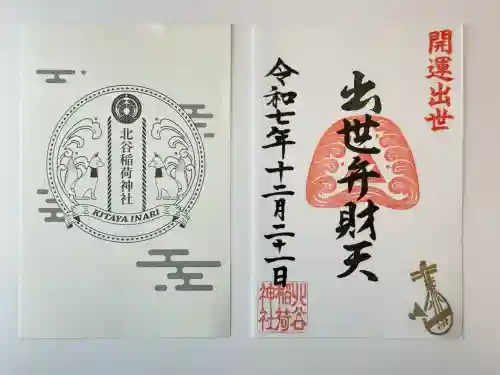 北谷稲荷神社
KITAYA INARI
開運出世
出世弁財天
令和七年十二月二十一日
北谷
稲荷
神社